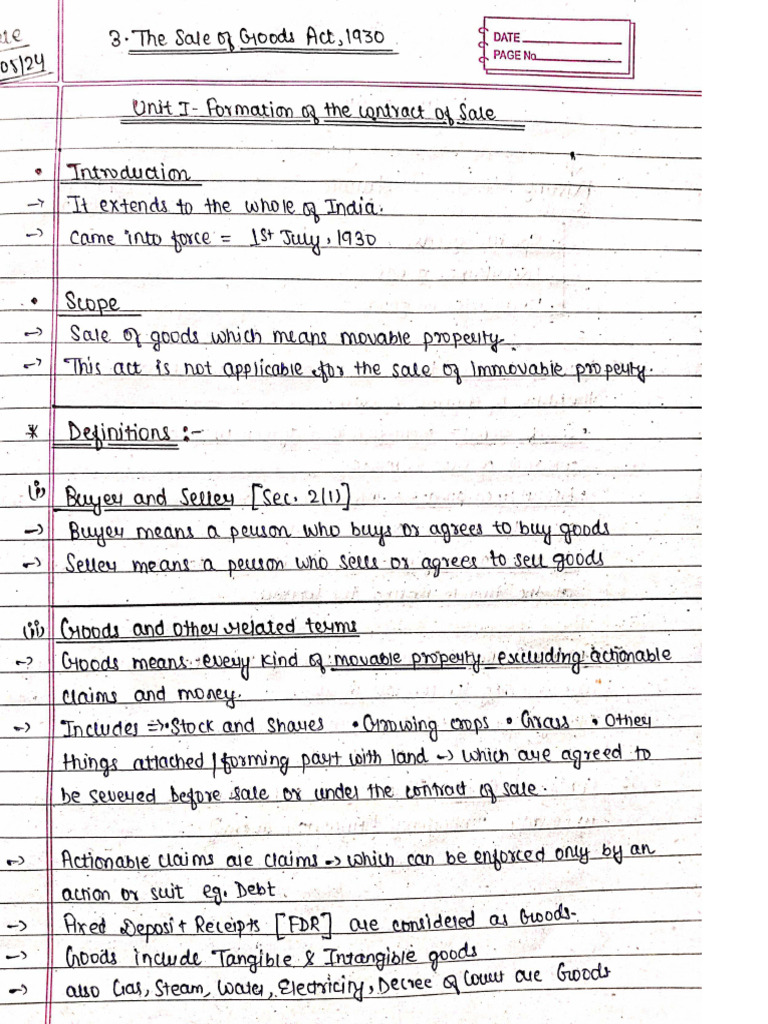 05/24
3. The Sale of Goods Act, 1930
DATE
PAGE No.
Unit I - Formation of the contract of Sale
• Introduction
→ It extends to the whole of India.
→ Came into force = 1st July, 1930
• Scope
→ Sale of goods which means movable property.
→ This act is not applicable for the sale of Immovable property.
* Definitions :-
(i) Buyer and Seller [Sec. 2(1)]
→ Buyer means a person who buys or agrees to buy goods
→ Seller means a person who sells or agrees to sell goods
(ii) Goods and other related terms
→ Goods means every kind of movable property excluding actionable
claims and money.
→ Includes ⇒ • Stock and Shares • Growing crops • Grass • Other
things attached / forming part with land → which are agreed to
be severed before sale or under the contract of sale.
→ Actionable claims are claims → which can be enforced only by an
action or suit eg. Debt.
→ Fixed Deposit Receipts [FDR] are considered as Goods.
→ Goods include Tangible & Intangible goods
→ also Gas, Steam, Water, Electricity, Decree of Court are Goods